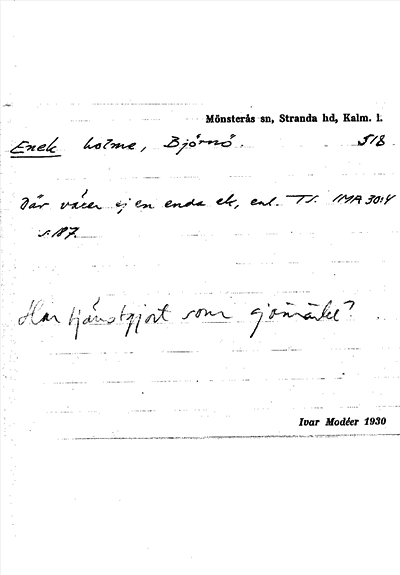 Mönsterås sn, Stranda hd, Kalm. l.
Enek holme, Björnö. 518
Där växer ej en enda ek, enl. TS. IMA 30:4
s. 187.
Har tjänstgjort som sjömärke?
Ivar Modéer 1930